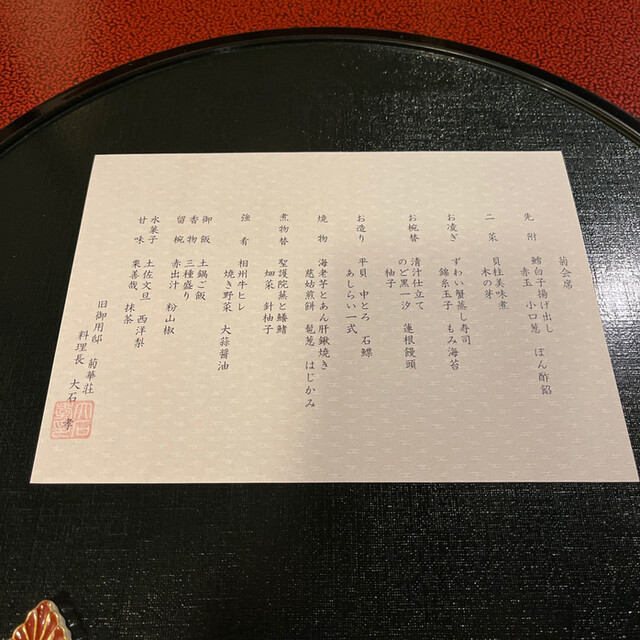 菊会席
先附 鱈白子揚げ出し ぽん酢餡
赤玉 小口葱
二菜 貝柱美味煮
木の芽
お凌ぎ ずわい蟹蒸し寿司
錦糸玉子 もみ海苔
お椀替 清汁仕立て
のど黒一汐 蓮根饅頭
柚子
お造り 平貝 中とろ 石鰈
あしらい一式
焼物 海老芋とあん肝鍬焼き
慈姑煎餅 葱 はじかみ
煮物替 聖護院蕪と鰭
畑菜 針柚子
強肴 相州牛ヒレ
焼き野菜 大蒜醤油
御飯 土鍋ご飯
香物 三種盛り
留椀 赤出汁 粉山椒
水菓子 土佐文旦 西洋梨
甘味 栗善哉 抹茶
旧御用邸 菊華荘
料理長 大石 孝